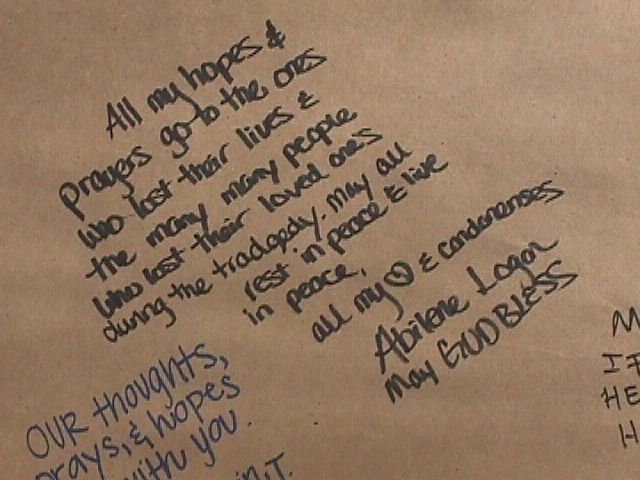 All my hopes &
Prayers go to the ones
who lost their lives &
the many many people
who lost their loved ones
during the tradgedy. May all
rest in peace & live
in peace.
all my ♡ & condonenses
Abilene Logan
May GOD BLESS
OUR thoughts,
prays, & hopes
with you.
M
IF
HE
H